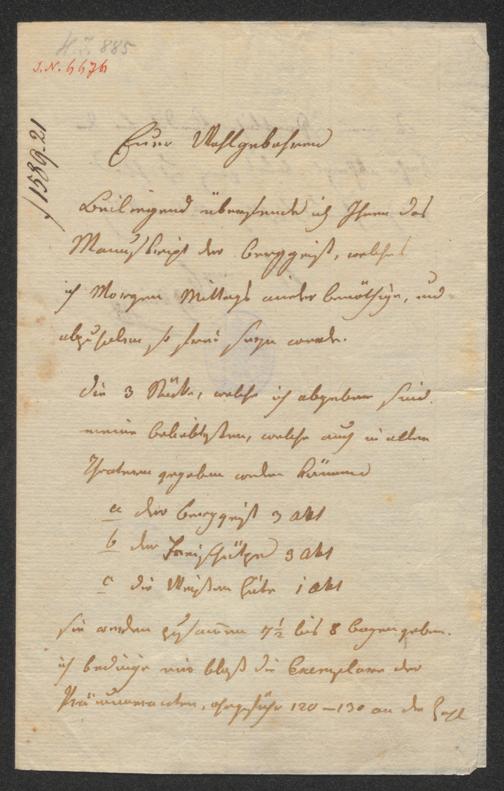 H.I. 885
I.N. 6676
/1589.21
Euer Wohlgebohren
Beiliegend übersende ich Ihnen das
Manuskript der Berggeist, welches
ich Morgen Mittags wieder benöthige, und
abzuholen so frei seyn werde.
die 3 Stücke, welche ich abgeben sind
meine beliebtesten, welche auch in allen
Theatern gegeben werden können
a der Berggeist 3 akt
b der Freischütze 3 akt
c die Weissen Hüte 1 akt
sie werden zusammen 7½ bis 8 bogen geben.
ich bedinge mir bloß die Exemplare der
Pränumeranten, ohngefähr 120–130 an der Zahl